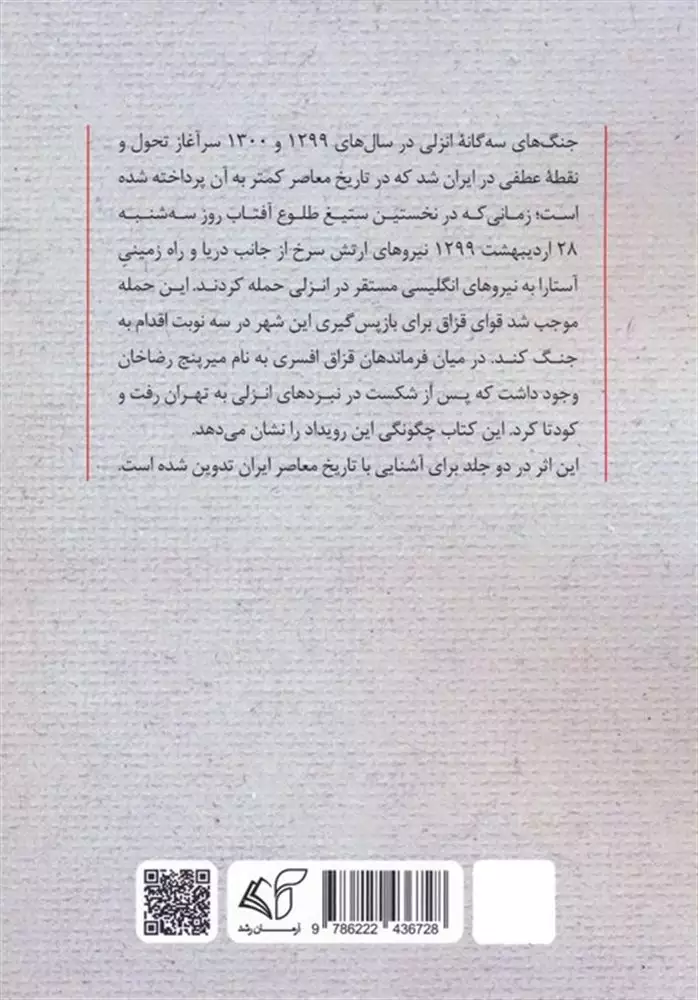 جنگ‌های سه‌گانهٔ انزلی در سال‌های ۱۲۹۹ و ۱۳۰۰ سرآغاز تحول و
نقطهٔ عطفی در ایران شد که در تاریخ معاصر کمتر به آن پرداخته شده
است؛ زمانی‌که در نخستین ستیغ طلوع آفتاب روز سه‌شنبه
۲۸ اردیبهشت ۱۲۹۹ نیروهای ارتش سرخ از جانب دریا و راه زمینیِ
آستارا به نیروهای انگلیسی مستقر در انزلی حمله کردند. این حمله
موجب شد قوای قزاق برای بازپس‌گیری این شهر در سه نوبت اقدام به
جنگ کند. در میان فرماندهان قزاق افسری به نام میرپنج رضاخان
وجود داشت که پس از شکست در نبردهای انزلی به تهران رفت و
کودتا کرد. این کتاب چگونگی این رویداد را نشان می‌دهد.
این اثر در دو جلد برای آشنایی با تاریخ معاصر ایران تدوین شده است.
آرمـان رشد
9 786222 436728